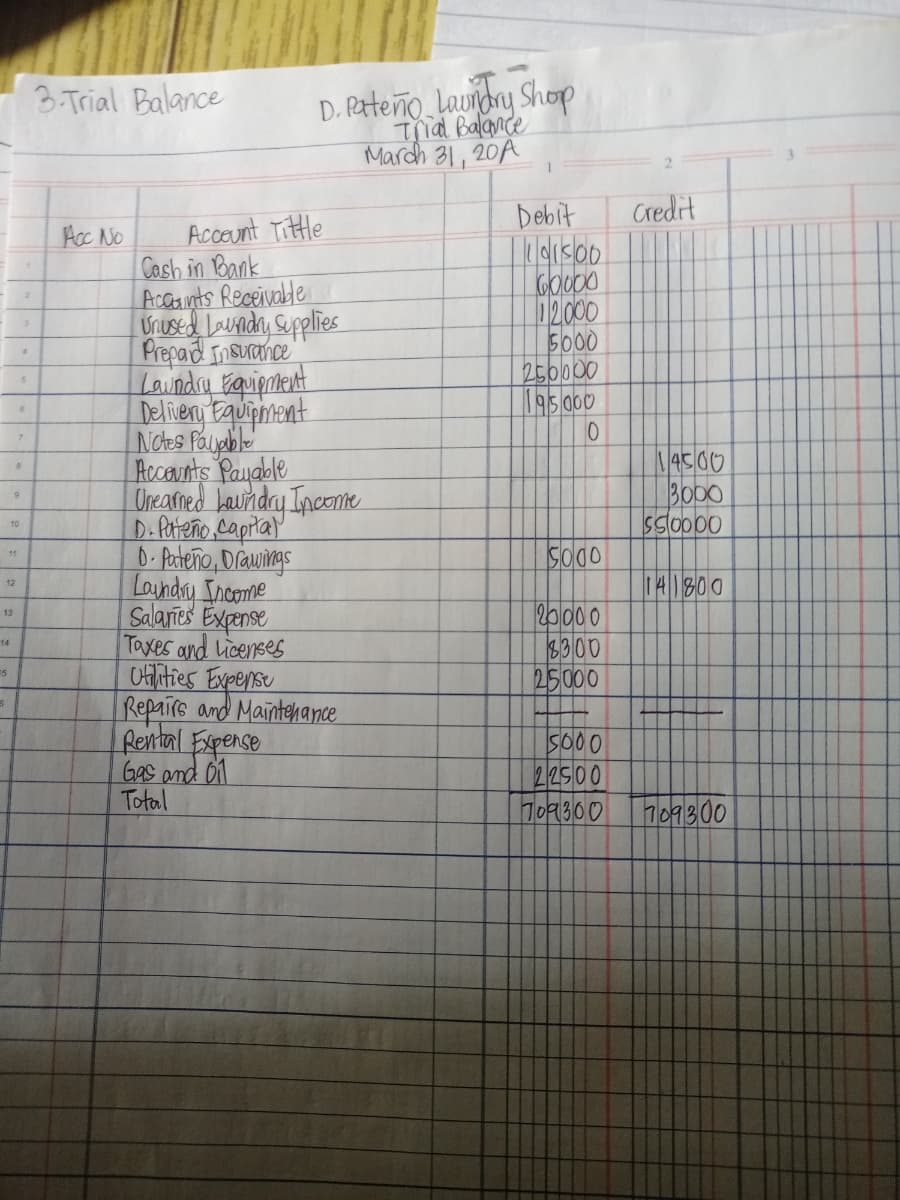 3. Trial Balance
D. Pateño Laundry Shop
Trial Balance
March 31, 20A
1 2 3
Acc No Account Tittle Debit Credit
1 Cash in Bank 101500
2 Accounts Receivable 60000
3 Unused Laundry Supplies 12000
4 Prepaid Insurance 5000
5 Laundry Equipment 250000
6 Delivery Equipment 195000
7 Notes Payable 0
8 Accounts Payable 14500
9 Unearned Laundry Income 3000
10 D. Pateño, Capital 550000
11 D. Pateño, Drawings 5000
12 Laundry Income 141800
13 Salaries Expense 20000
14 Taxes and Licenses 8300
5 Utilities Expense 25000
Repairs and Maintenance — —
Rental Expense 5000
Gas and Oil 22500
Total 709300 709300